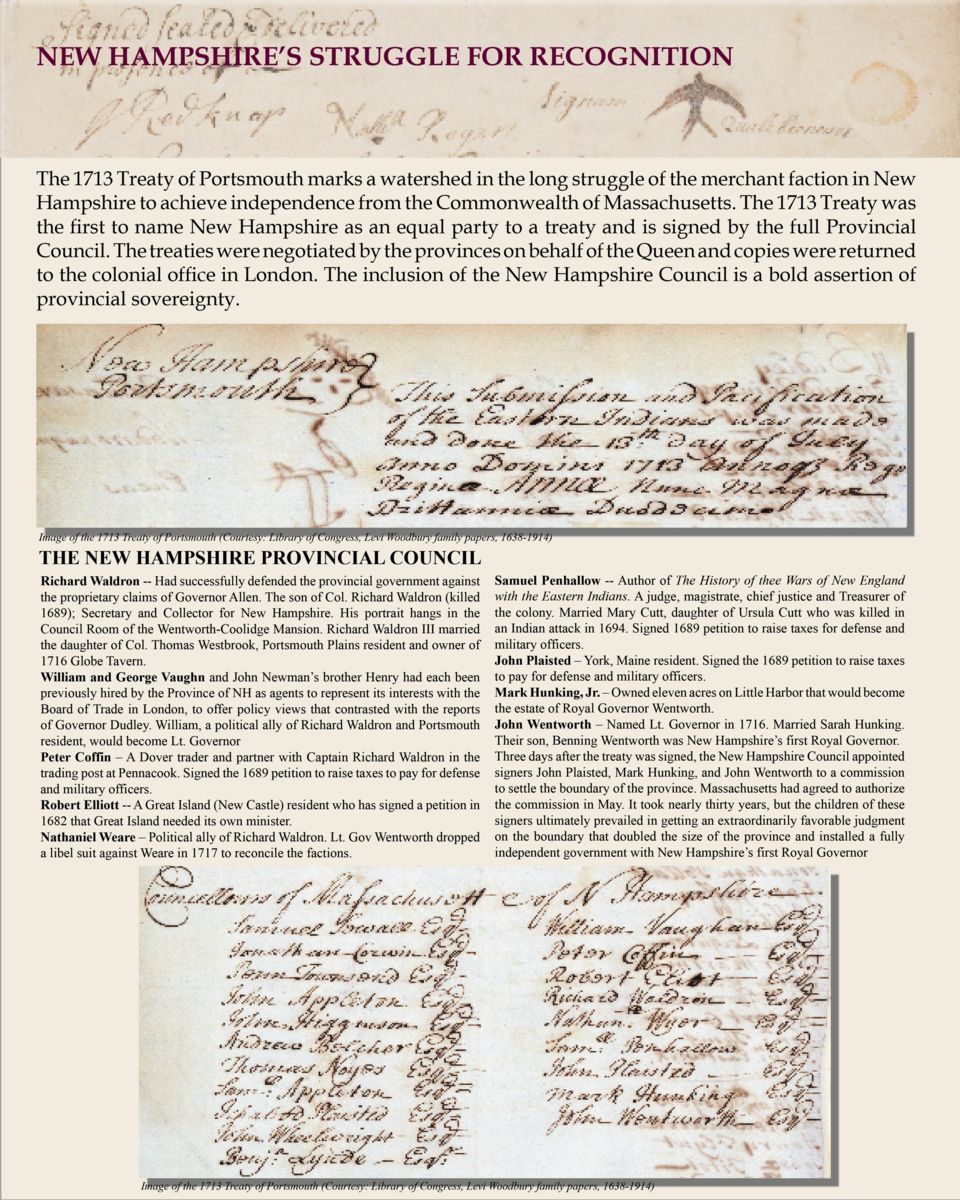 Signed sealed & delivered
NEW HAMPSHIRE'S STRUGGLE FOR RECOGNITION
J Redknap
Signum
The 1713 Treaty of Portsmouth marks a watershed in the long struggle of the merchant faction in New
Hampshire to achieve independence from the Commonwealth of Massachusetts. The 1713 Treaty was
the first to name New Hampshire as an equal party to a treaty and is signed by the full Provincial
Council. The treaties were negotiated by the provinces on behalf of the Queen and copies were returned
to the colonial office in London. The inclusion of the New Hampshire Council is a bold assertion of
provincial sovereignty.
New Hampshire
Portsmouth
This Submission and Pacification
of the Eastern Indians was made
and done the 13th day of July
Anno Domini 1713 Annoqs Regn
Reginæ ANNÆ Nunc Magnæ
Brittanniæ Duodecimo
Image of the 1713 Treaty of Portsmouth (Courtesy: Library of Congress, Levi Woodbury family papers, 1638-1914)
THE NEW HAMPSHIRE PROVINCIAL COUNCIL
Richard Waldron -- Had successfully defended the provincial government against
the proprietary claims of Governor Allen. The son of Col. Richard Waldron (killed
1689); Secretary and Collector for New Hampshire. His portrait hangs in the
Council Room of the Wentworth-Coolidge Mansion. Richard Waldron III married
the daughter of Col. Thomas Westbrook, Portsmouth Plains resident and owner of
1716 Globe Tavern.
William and George Vaughn and John Newman's brother Henry had each been
previously hired by the Province of NH as agents to represent its interests with the
Board of Trade in London, to offer policy views that contrasted with the reports
of Governor Dudley. William, a political ally of Richard Waldron and Portsmouth
resident, would become Lt. Governor
Peter Coffin – A Dover trader and partner with Captain Richard Waldron in the
trading post at Pennacook. Signed the 1689 petition to raise taxes to pay for defense
and military officers.
Robert Elliott -- A Great Island (New Castle) resident who has signed a petition in
1682 that Great Island needed its own minister.
Nathaniel Weare – Political ally of Richard Waldron. Lt. Gov Wentworth dropped
a libel suit against Weare in 1717 to reconcile the factions.
Samuel Penhallow -- Author of The History of thee Wars of New England
with the Eastern Indians. A judge, magistrate, chief justice and Treasurer of
the colony. Married Mary Cutt, daughter of Ursula Cutt who was killed in
an Indian attack in 1694. Signed 1689 petition to raise taxes for defense and
military officers.
John Plaisted – York, Maine resident. Signed the 1689 petition to raise taxes
to pay for defense and military officers.
Mark Hunking, Jr. – Owned eleven acres on Little Harbor that would become
the estate of Royal Governor Wentworth.
John Wentworth – Named Lt. Governor in 1716. Married Sarah Hunking.
Their son, Benning Wentworth was New Hampshire's first Royal Governor.
Three days after the treaty was signed, the New Hampshire Council appointed
signers John Plaisted, Mark Hunking, and John Wentworth to a commission
to settle the boundary of the province. Massachusetts had agreed to authorize
the commission in May. It took nearly thirty years, but the children of these
signers ultimately prevailed in getting an extraordinarily favorable judgment
on the boundary that doubled the size of the province and installed a fully
independent government with New Hampshire's first Royal Governor
Councellours of Massachusett & of N Hampshire
Samuel Sewall Esqr
Jonathan Corwin Esqr
Penn Townsend Esqr
John Appleton Esqr
John Higginson Esqr
Andrew Belcher Esqr
Thomas Noyes Esqr
Saml Appleton Esqr
Ichabod Plaisted Esqr
John Wheelwright Esqr
Benjn Lynde – Esqr
William Vaughan Esqr
Peter Coffin – Esqr
Robert Eliot Esqr
Richard Waldron – Esqr
Nathanl Wyer – Esqr
Samll Penhallow Esqr
John Plaisted – Esqr
Mark Hunking Esqr
John Wentworth – Esqr
Image of the 1713 Treaty of Portsmouth (Courtesy: Library of Congress, Levi Woodbury family papers, 1638-1914)